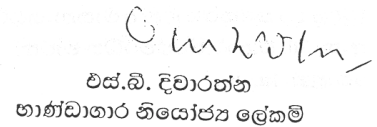 එස්.බී. දිවාරත්න
භාණ්ඩාගාර නියෝජ්‍ය ලේකම්